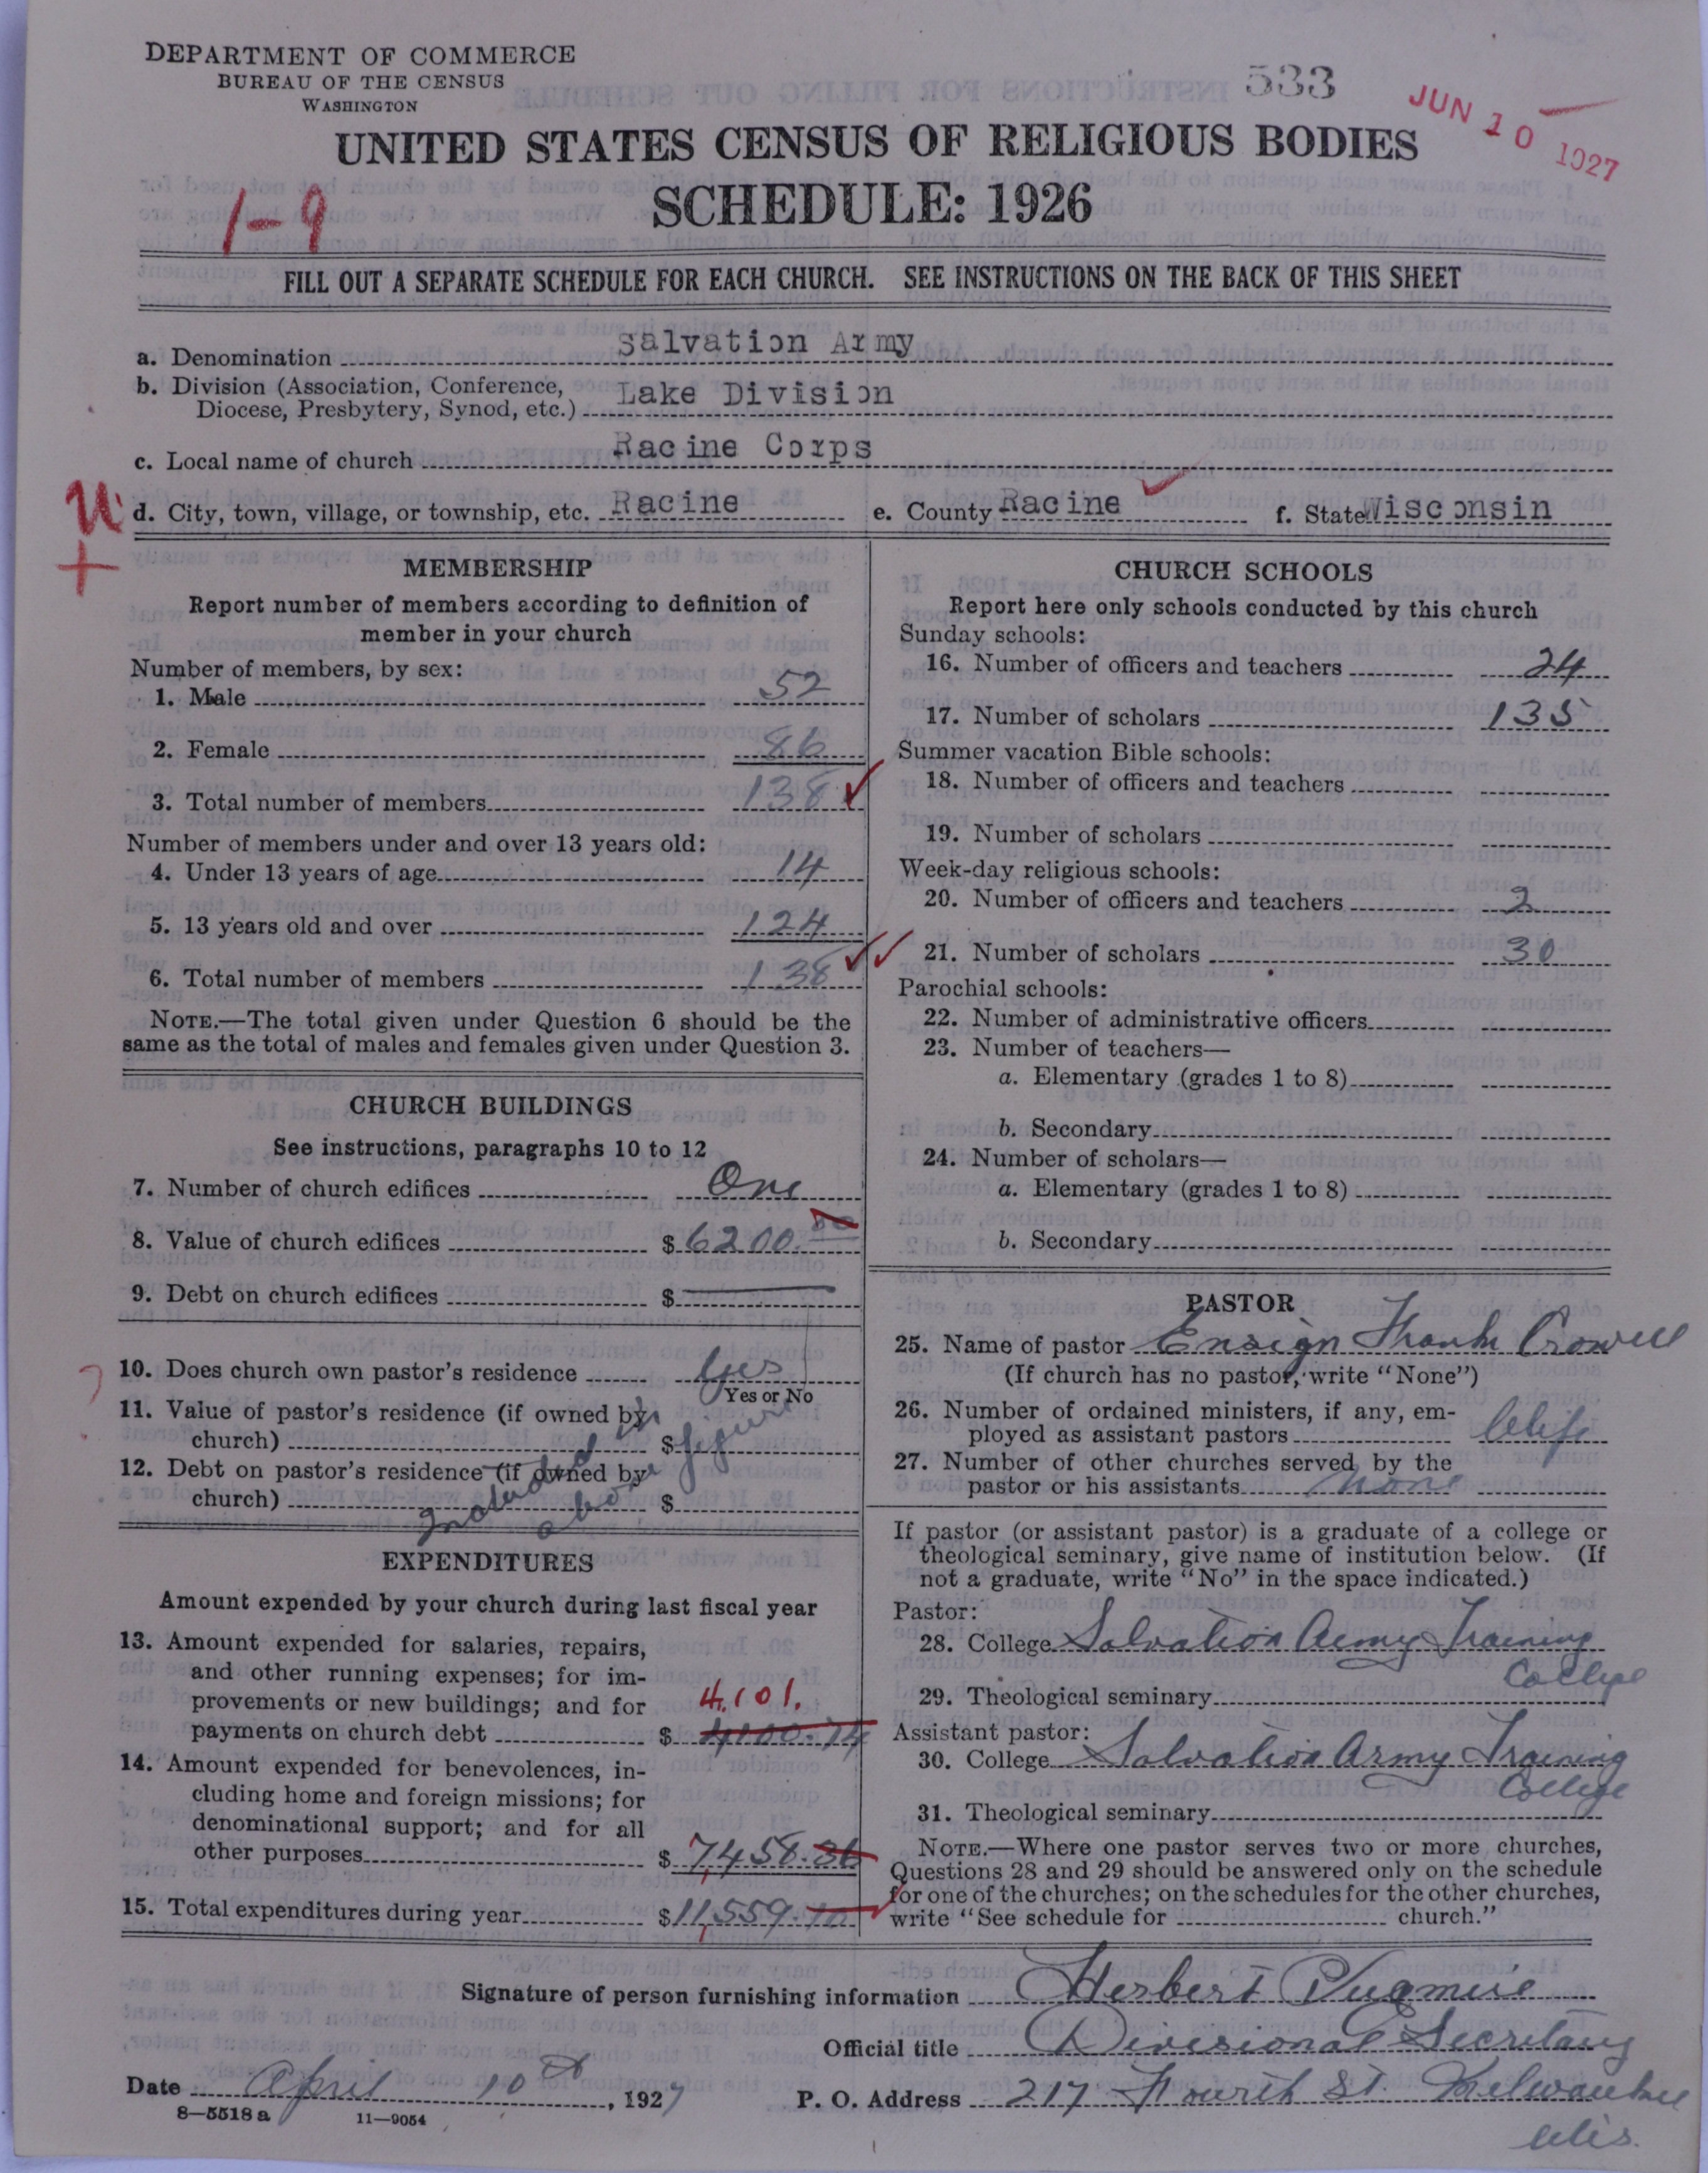 DEPARTMENT OF COMMERCE
BUREAU OF THE CENSUS
WASHINGTON
533
JUN 10 1927
UNITED STATES CENSUS OF RELIGIOUS BODIES
SCHEDULE: 1926
1-9
FILL OUT A SEPARATE SCHEDULE FOR EACH CHURCH. SEE INSTRUCTIONS ON THE BACK OF THIS SHEET
a. Denomination Salvation Army
b. Division (Association, Conference,
Diocese, Presbytery, Synod, etc.) Lake Division
c. Local name of church Racine Corps
U
+
d. City, town, village, or township, etc. Racine e. County Racine f. State Wisconsin
MEMBERSHIP
Report number of members according to definition of
member in your church
Number of members, by sex:
1. Male 52
2. Female 86
3. Total number of members 138
Number of members under and over 13 years old:
4. Under 13 years of age 14
5. 13 years old and over 124
6. Total number of members 138
NOTE.—The total given under Question 6 should be the
same as the total of males and females given under Question 3.
CHURCH BUILDINGS
See instructions, paragraphs 10 to 12
7. Number of church edifices One
8. Value of church edifices $ 6200.00
9. Debt on church edifices $
10. Does church own pastor's residence Yes
Yes or No
11. Value of pastor's residence (if owned by
church) $
12. Debt on pastor's residence (if owned by
church) $
Included in above figure
EXPENDITURES
Amount expended by your church during last fiscal year
13. Amount expended for salaries, repairs,
and other running expenses; for im-
provements or new buildings; and for 4,101.
payments on church debt $ 4100.74
14. Amount expended for benevolences, in-
cluding home and foreign missions; for
denominational support; and for all
other purposes $ 7,458.36
15. Total expenditures during year $ 11,559.10
CHURCH SCHOOLS
Report here only schools conducted by this church
Sunday schools:
16. Number of officers and teachers 24
17. Number of scholars 135
Summer vacation Bible schools:
18. Number of officers and teachers
19. Number of scholars
Week-day religious schools:
20. Number of officers and teachers 2
21. Number of scholars 30
Parochial schools:
22. Number of administrative officers
23. Number of teachers—
a. Elementary (grades 1 to 8)
b. Secondary
24. Number of scholars—
a. Elementary (grades 1 to 8)
b. Secondary
PASTOR
25. Name of pastor Ensign Frank Crowell
(If church has no pastor, write "None")
26. Number of ordained ministers, if any, em-
ployed as assistant pastors Wife
27. Number of other churches served by the
pastor or his assistants none
If pastor (or assistant pastor) is a graduate of a college or
theological seminary, give name of institution below. (If
not a graduate, write "No" in the space indicated.)
Pastor:
28. College Salvation Army Training
College
29. Theological seminary
Assistant pastor:
30. College Salvation Army Training
College
31. Theological seminary
NOTE.—Where one pastor serves two or more churches,
Questions 28 and 29 should be answered only on the schedule
for one of the churches; on the schedules for the other churches,
write "See schedule for church."
Signature of person furnishing information Herbert Pugmire
Official title Divisional Secretary
Date April 10th, 1927 P. O. Address 217 Fourth St. Milwaukee
Wis.
8—5518 a 11—9054